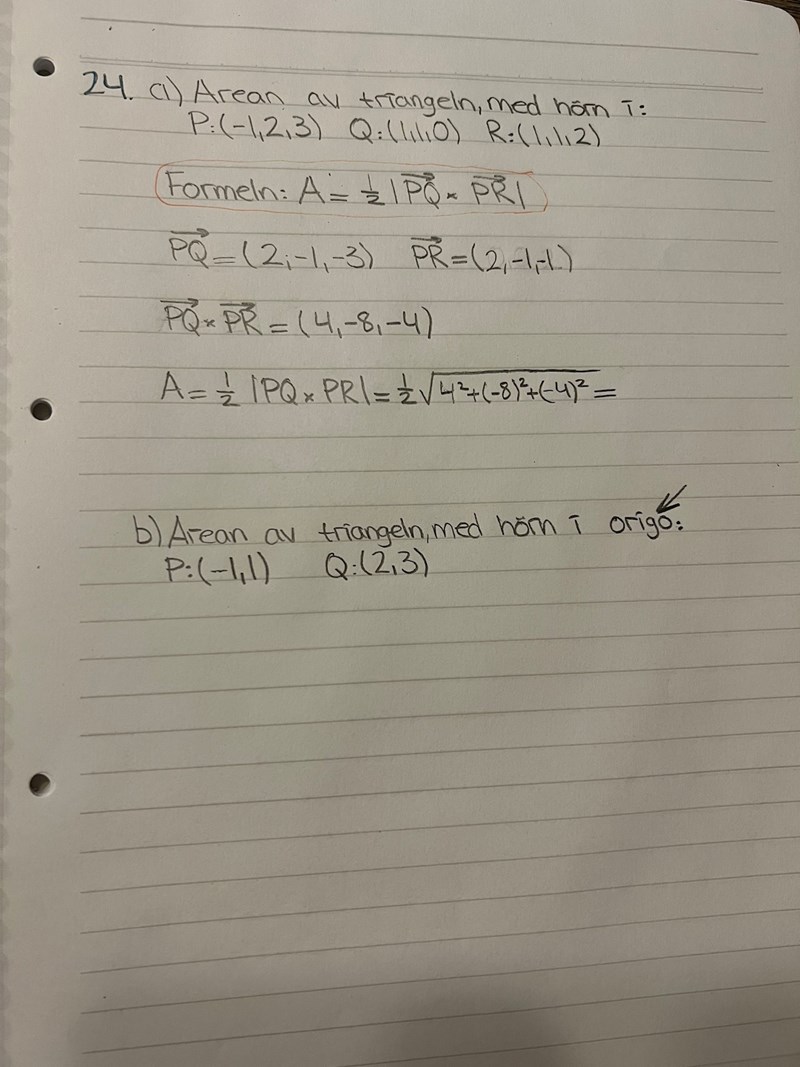 24. a) Arean av triangeln, med hörn i:
P:(-1,2,3) Q:(1,1,0) R:(1,1,2)
Formeln: A = 1/2 |PQ⃗ × PR⃗|
PQ⃗ = (2,-1,-3) PR⃗ = (2,-1,-1)
PQ⃗ × PR⃗ = (4,-8,-4)
A = 1/2 |PQ × PR| = 1/2 √(4²+(-8)²+(-4)²) =
b) Arean av triangeln, med hörn i origo:
P:(-1,1) Q:(2,3)